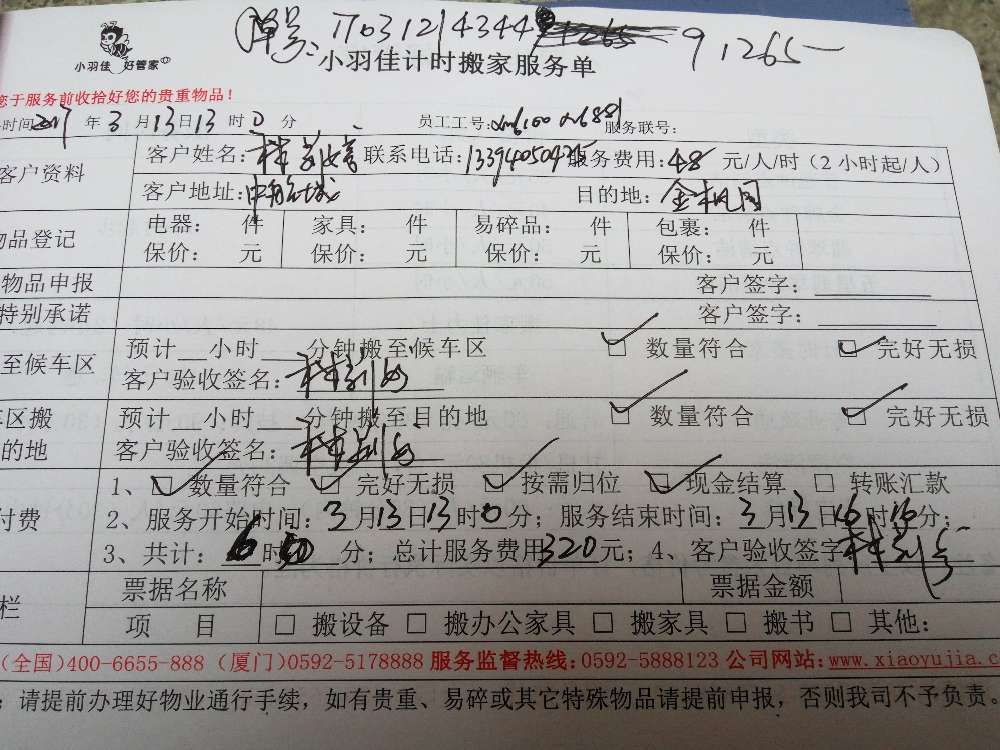 单号: 17031214344 91265
小羽佳 好管家
小羽佳计时搬家服务单
您于服务前收拾好您的贵重物品!
时间 2017 年 3 月 13 日 13 时 0 分 员工工号: 服务联号:
客户资料 客户姓名: 联系电话: 服务费用: 48 元/人/时(2 小时起/人)
客户地址: 目的地: 金枫园
物品登记 电器: 件 家具: 件 易碎品: 件 包裹: 件
保价: 元 保价: 元 保价: 元 保价: 元
物品申报 客户签字:
特别承诺 客户签字:
至候车区 预计 小时 分钟搬至候车区 ☑ 数量符合 ☑ 完好无损
客户验收签名:
车区搬 预计 小时 分钟搬至目的地 ☑ 数量符合 ☑ 完好无损
的地 客户验收签名:
1、☑ 数量符合 ☑ 完好无损 ☑ 按需归位 ☑ 现金结算 □ 转账汇款
付费 2、服务开始时间: 3 月 13 日 13 时 0 分; 服务结束时间: 3 月 13 日 16 时 16 分;
3、共计: 6 时 分; 总计服务费用 320 元; 4、客户验收签字
栏 票据名称 票据金额
项 目 □ 搬设备 □ 搬办公家具 □ 搬家具 □ 搬书 □ 其他:
(全国)400-6655-888 (厦门)0592-5178888 服务监督热线:0592-5888123 公司网站:www.xiaoyujia.c
: 请提前办理好物业通行手续，如有贵重、易碎或其它特殊物品请提前申报，否则我司不予负责。